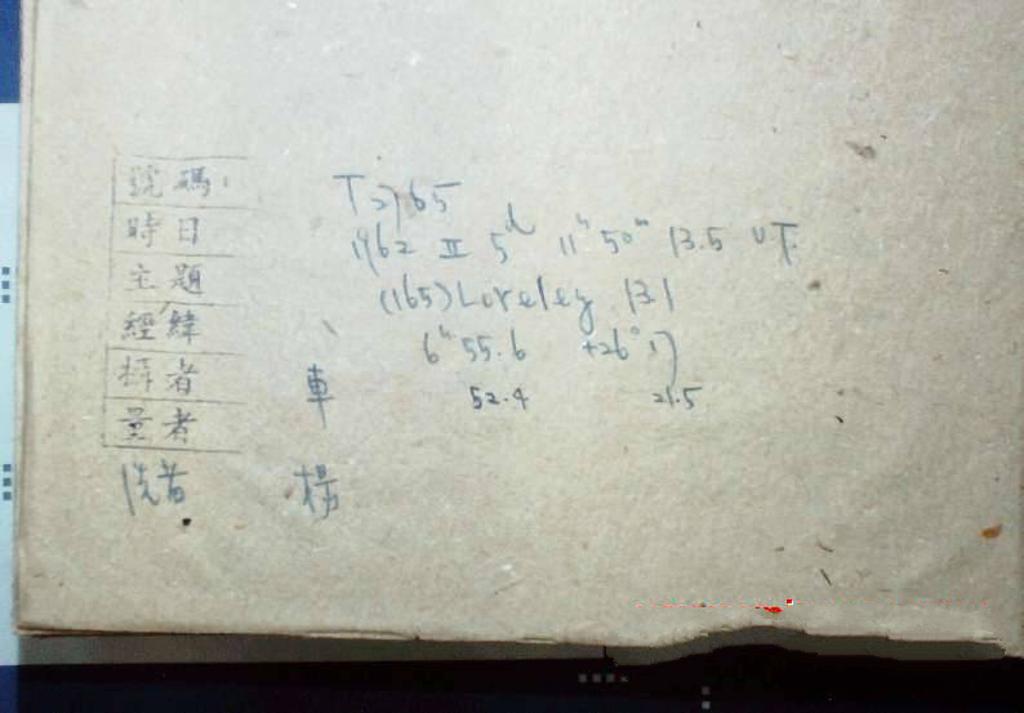 號碼: T2765
時日 1962 II 5d 11h 50m 13.5 U.T.
主題 (165) Loreley 13.1
經緯 6h 55.6 +26° 17
攝者 車 52.4 21.5
量者
洗者 楊